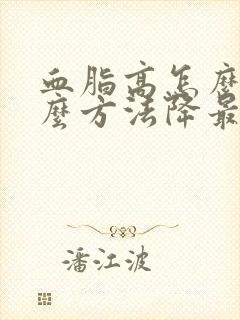 血脂高怎麼
麼方法降最
潘江波